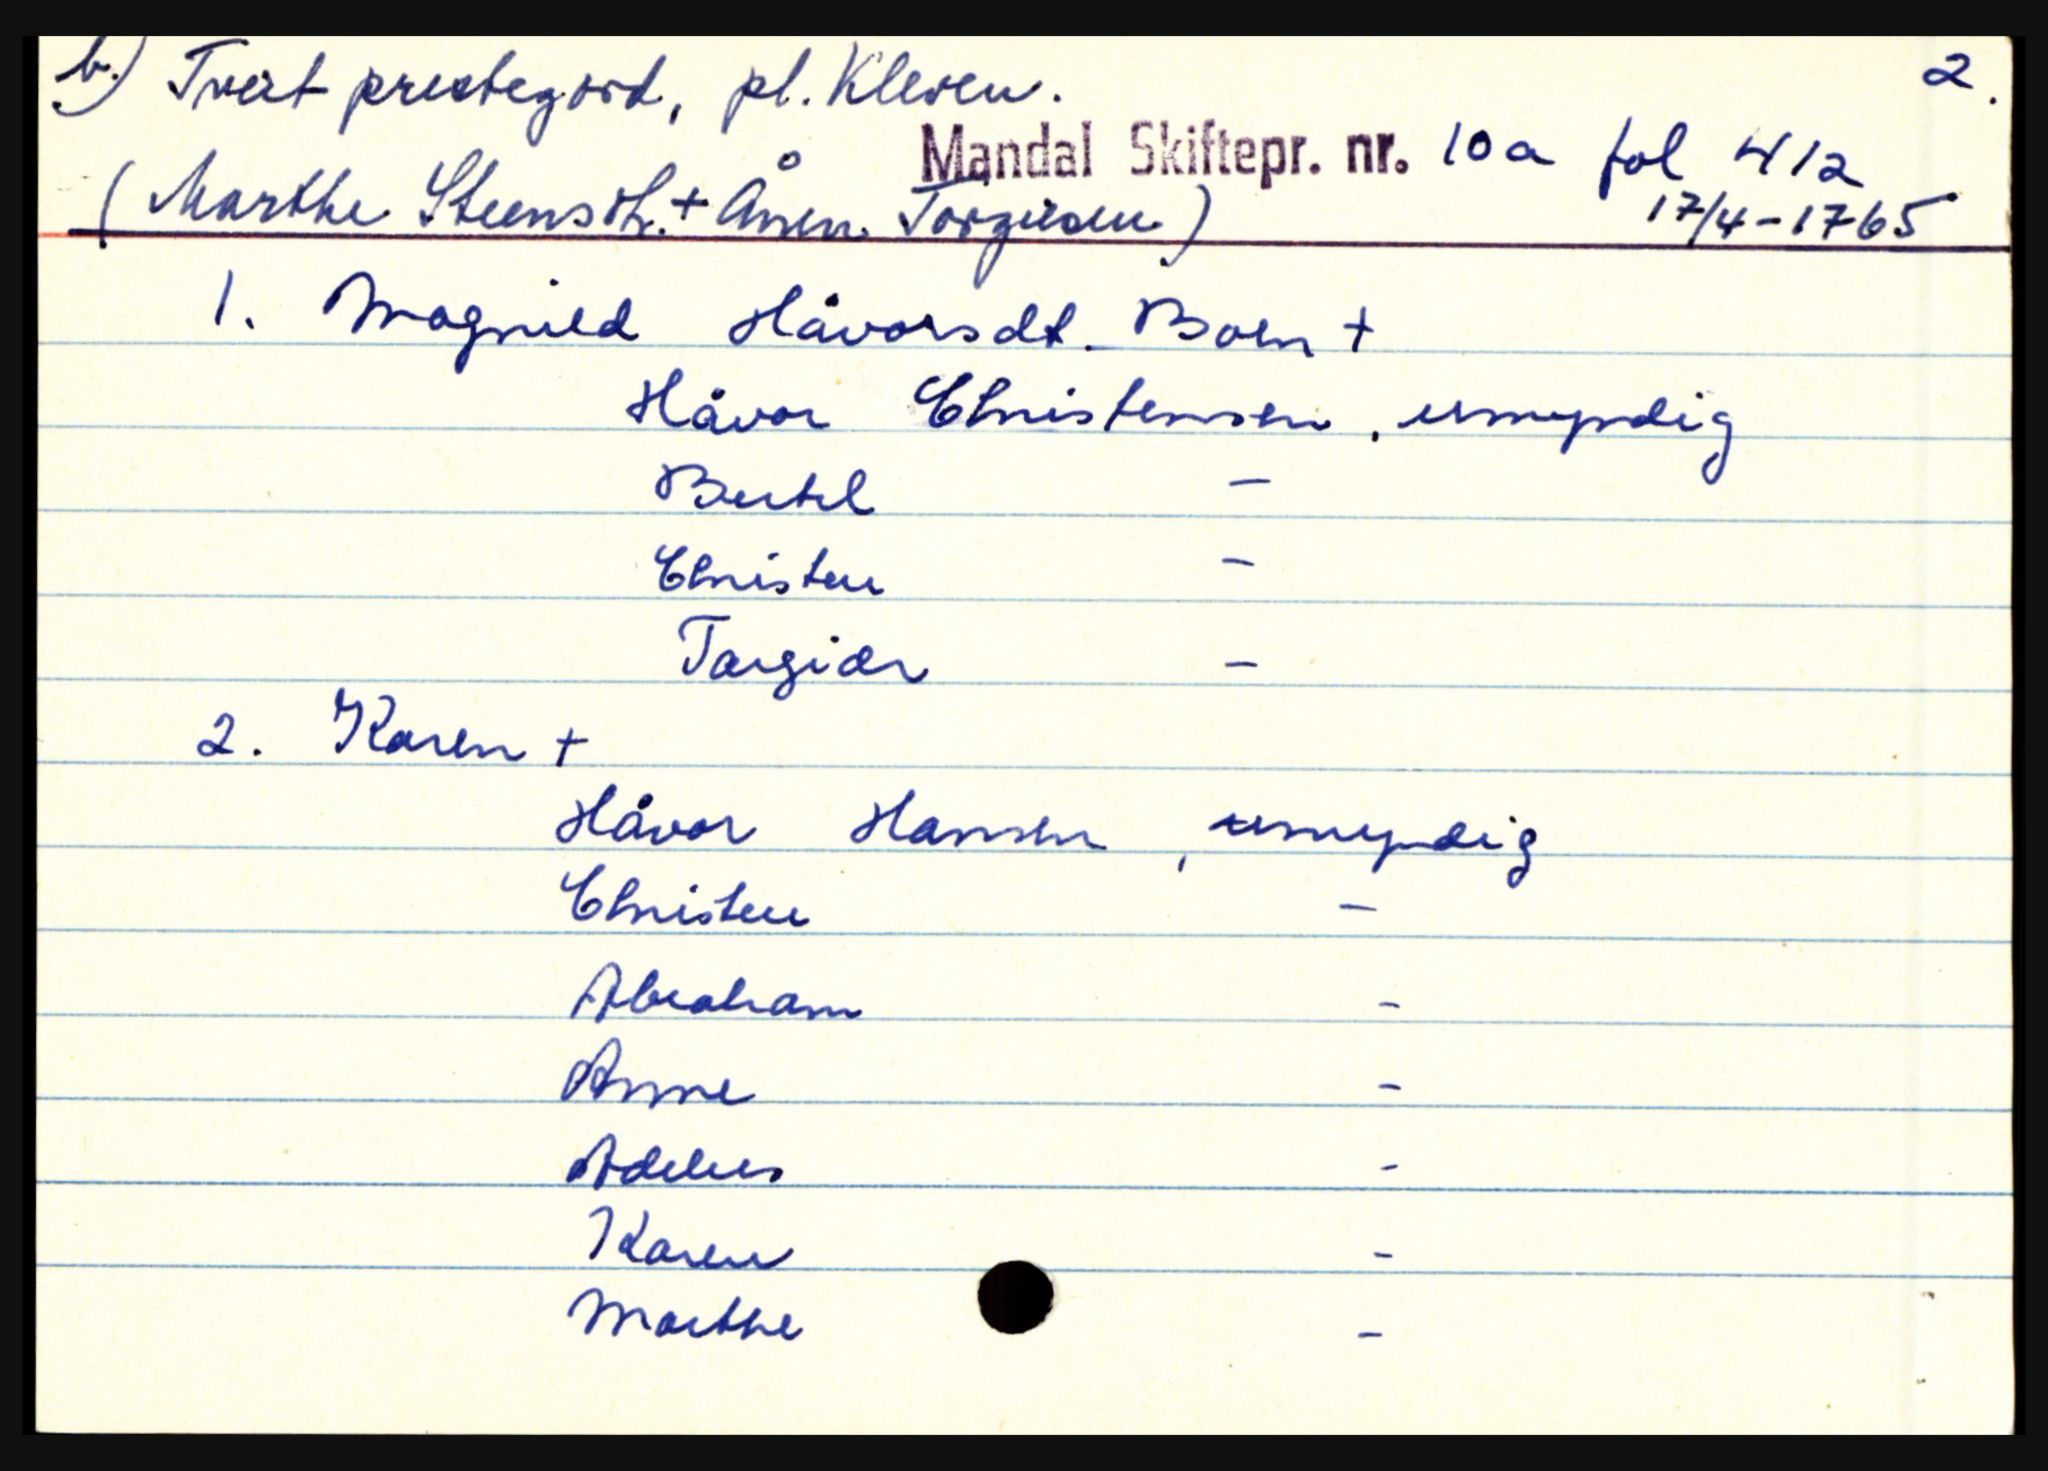 b.) Tveit prestegord, pl. Kleven. 2.
Mandal Skiftepr. nr. 10a fol 412
(Marthe Steensdt. + Ånen Torgiersen) 17/4-1765
1. Magnild Håvorsdt. Boen +
Håvor Christensen, umyndig
Bertel -
Christen -
Targiær -
2. Karen +
Håvor Hansen, umyndig
Christen -
Abraham -
Anne -
Adelus -
Karen -
Marthe -